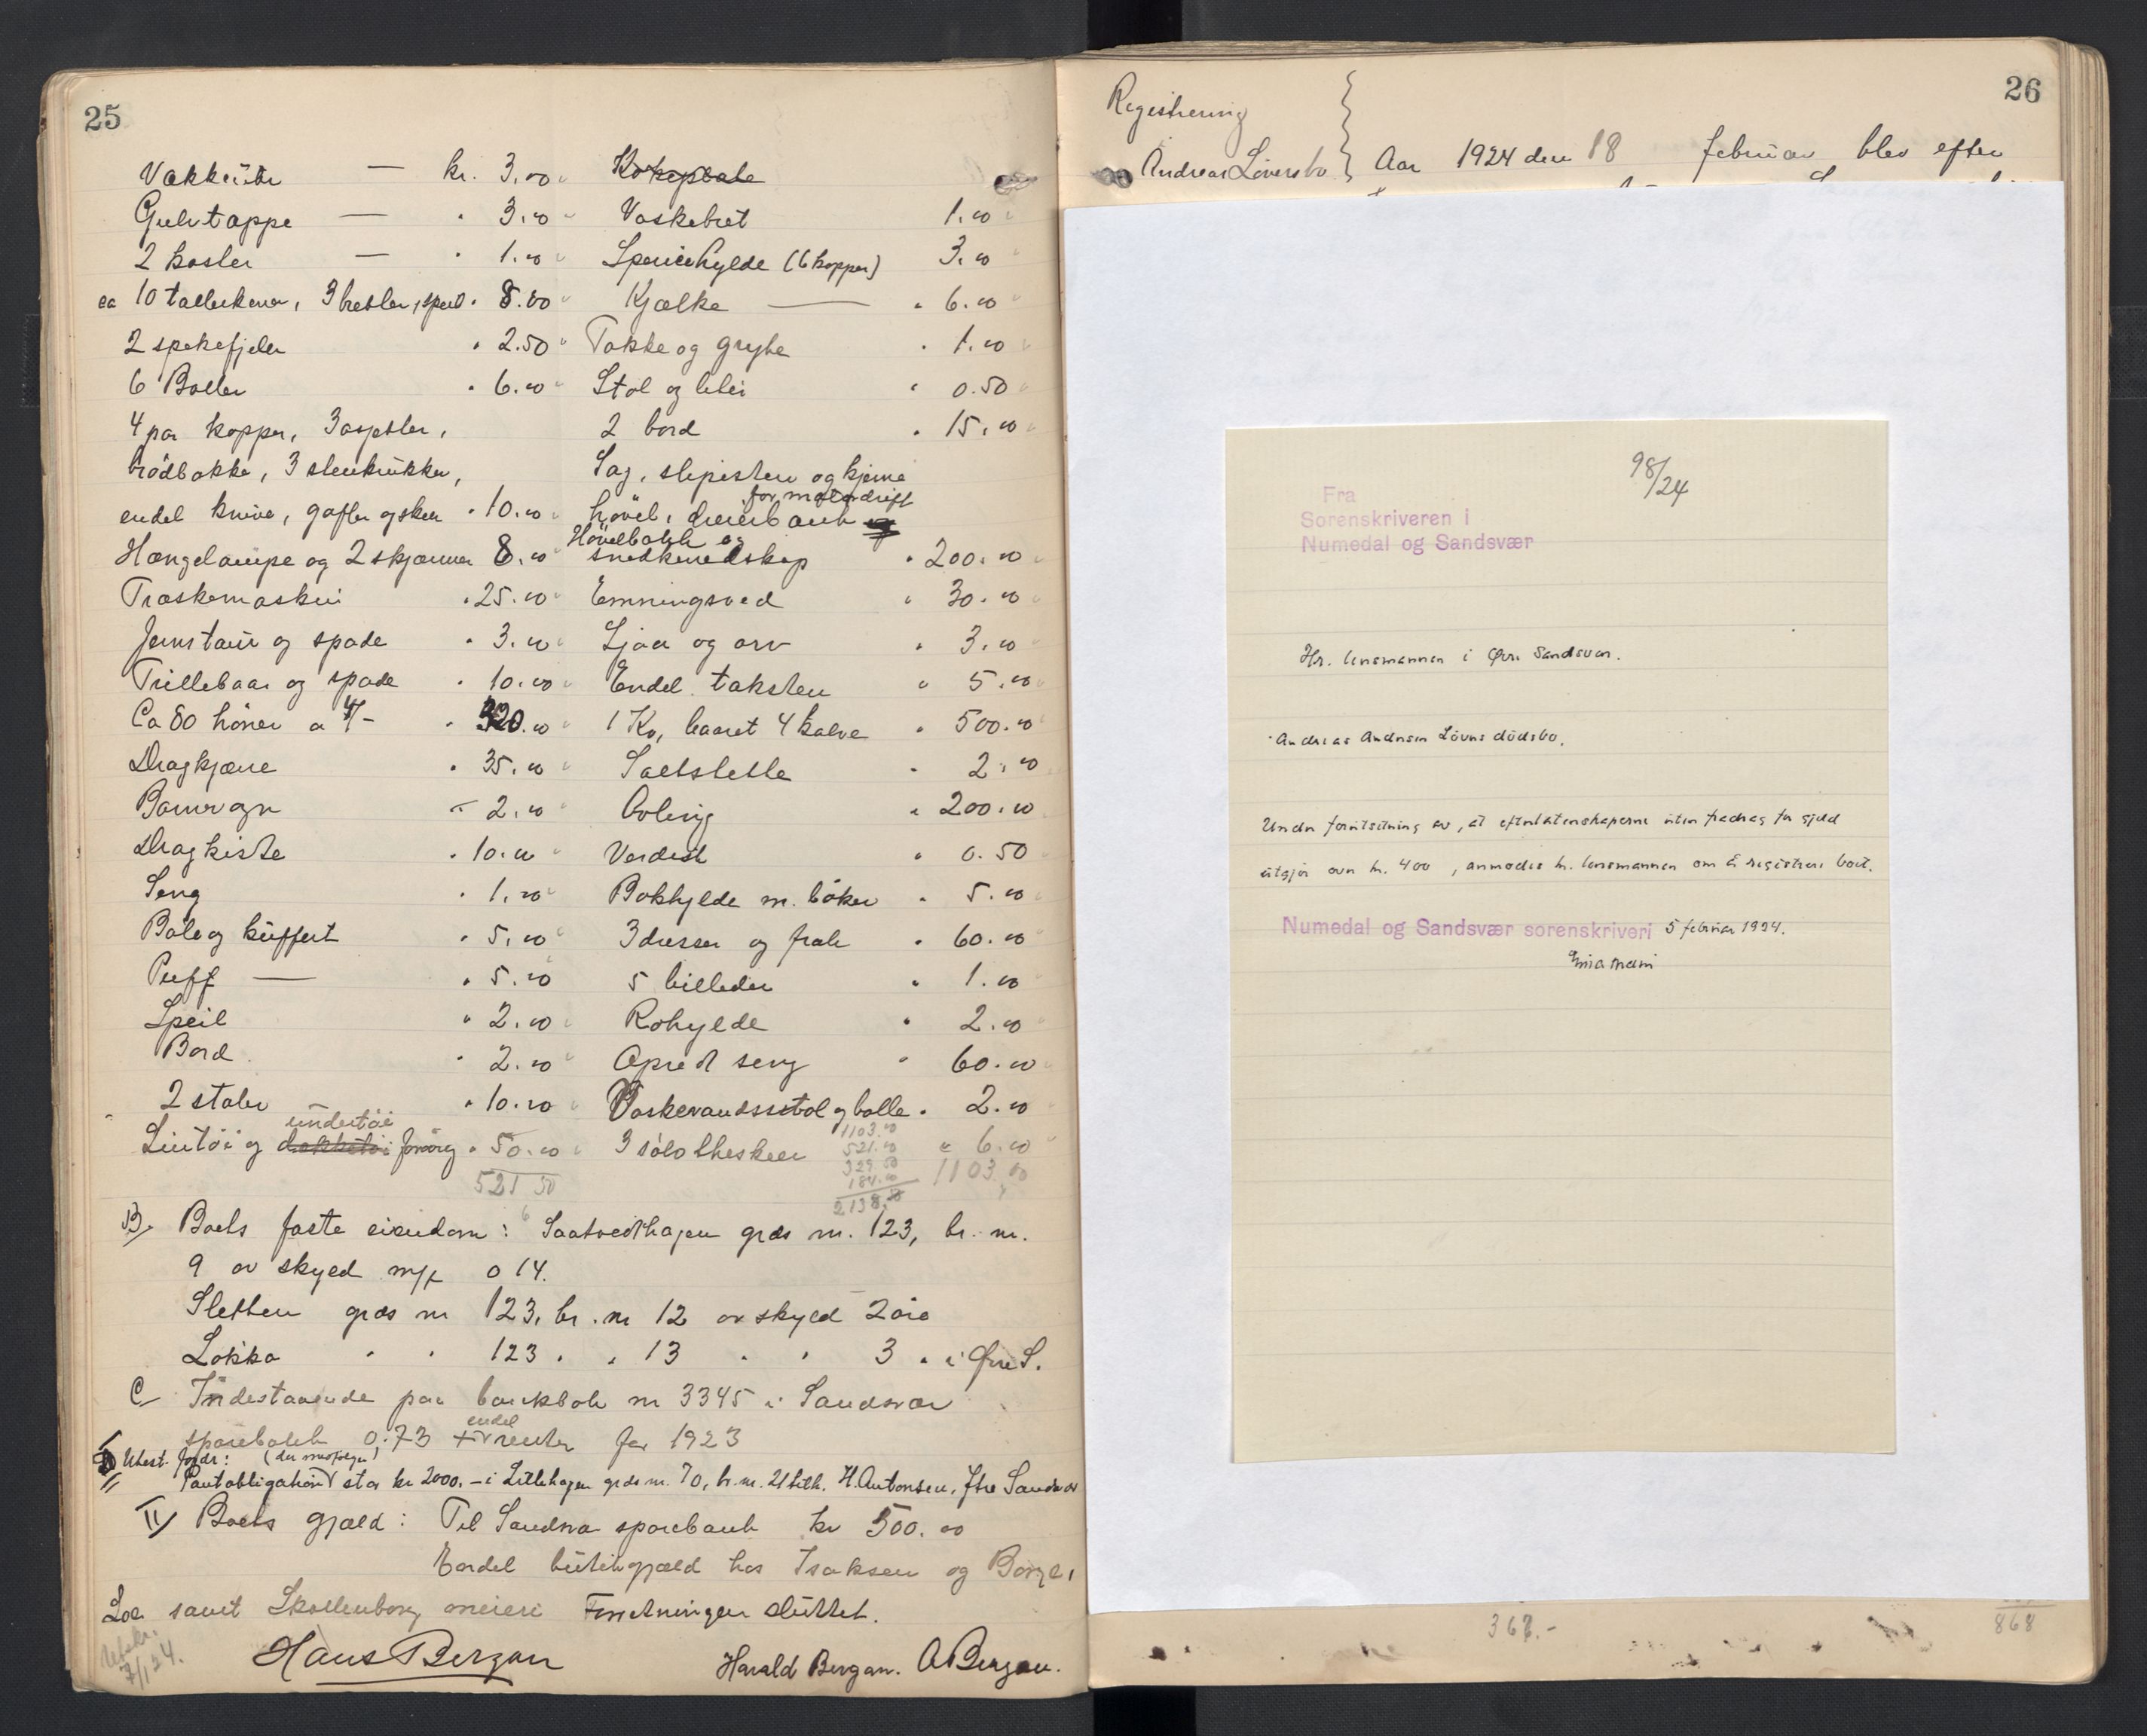 25
Vækkeur — kr. 3.00
Gulvtæppe — " 3.00
2 koster — " 1.00
ca 10 tallerkener, 3 bretter, speil " 8.00
2 spekefjeler " 2.50
6 Boller " 6.00
4 par kopper, 3 asjetter,
brödbakke, 3 stenkrukker,
endel knive, gafler og skeer " 10.00
Hængelampe og 2 skjærmer 8.00
Træskemaskin " 25.00
Jernstaur og spade " 3.00
Trillebaar og spade " 10.00
Ca 80 höner a 4/- " 320.00
Dragkjærre " 35.00
Barnevogn " 2.00
Dragkiste " 10.00
Seng " 1.00
Bale og kuffert " 5.00
Puff — " 5.00
Speil " 2.00
Bord " 2.00
2 stoler " 10.00
undertöi
Lintöi og forövrig " 50.00
521 50
Vaskebret 1.00
hylde (6 kopper) 3.00
Kjælke — " 6.00
Takke og gryte " 1.00
Stol og " 0.50
2 bord " 15.00
Sag, slipesten og kjerne
for motordrift
hövel, dreierbænk
Hövelbænk og
snedkerredskap " 200.00
Emningsved " 30.00
Ljaa og orv " 3.00
Endel taksten " 5.00
1 Ku, baaret 4 kalve " 500.00
Saltslette 2.00
Avling " 200.00
" 0.50
Bokhylde m. böker " 5.00
3 dresser og frak " 60.00
5 billeder " 1.00
Rohylde " 2.00
Opredt seng " 60.00
Vaskevandsstol og bolle " 2.00
3 sölvtheskeer " 6.00
1103.00
1103.00
521.00
329.50
184.00
2138.
B/ Boets faste eiendom: Saatvedthagen grds nr. 123, br. nr.
9 av skyld m/ 0 14.
Sletten grds nr 123, br. nr 12 av skyld 2 öre
Løkka " " 123 " " 13 " " 3 " i Øvre S.
C/ Indestaaende paa bankbok nr 3345 i Sandsvær
endel
sparebank 0.73 renter for 1923
Utest. fordr: (
Pantobligation stor kr 2000.- i Lillehagen grds nr. 70, br. nr. 21 H. Antonsen, Ytre Sandsvær
II/ Boets gjæld: Til Sandsvær sparebank kr 500.00
Endel butikgjæld hos Isaksen og Borge,
Loe samt Skollenborg meieri Forretningen sluttet.
Utskr.
7/1 24.
Hans Bergan
Harald Bergan. A Bergan.
26
Registrering
Andreas Löversbo } Aar 1924 den 18 februar blev efter
98/24
Fra
Sorenskriveren i
Numedal og Sandsvær
Hr. lensmannen i Øvre Sandsvær.
Andreas Andersen Lövers dödsbo.
Under forutsætning av, at efterlatenskaperne uten fradrag for gjeld
utgjör over kr. 400, anmodes hr. lensmannen om å registrere boet.
Numedal og Sandsvær sorenskriveri 5 februar 1924.
367.-
868